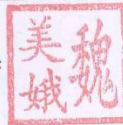 魏美娥